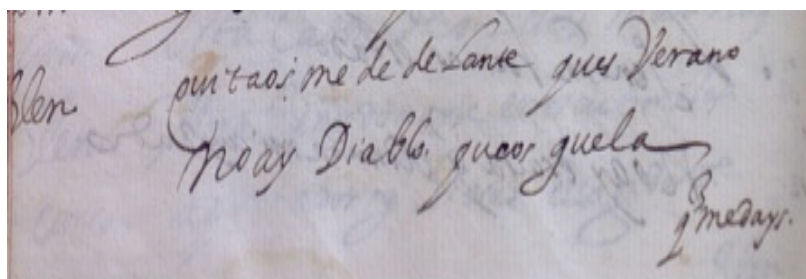 Blen quitaosme de delante ques Verano
no ay Diablo. queos guela
q̃ me days.